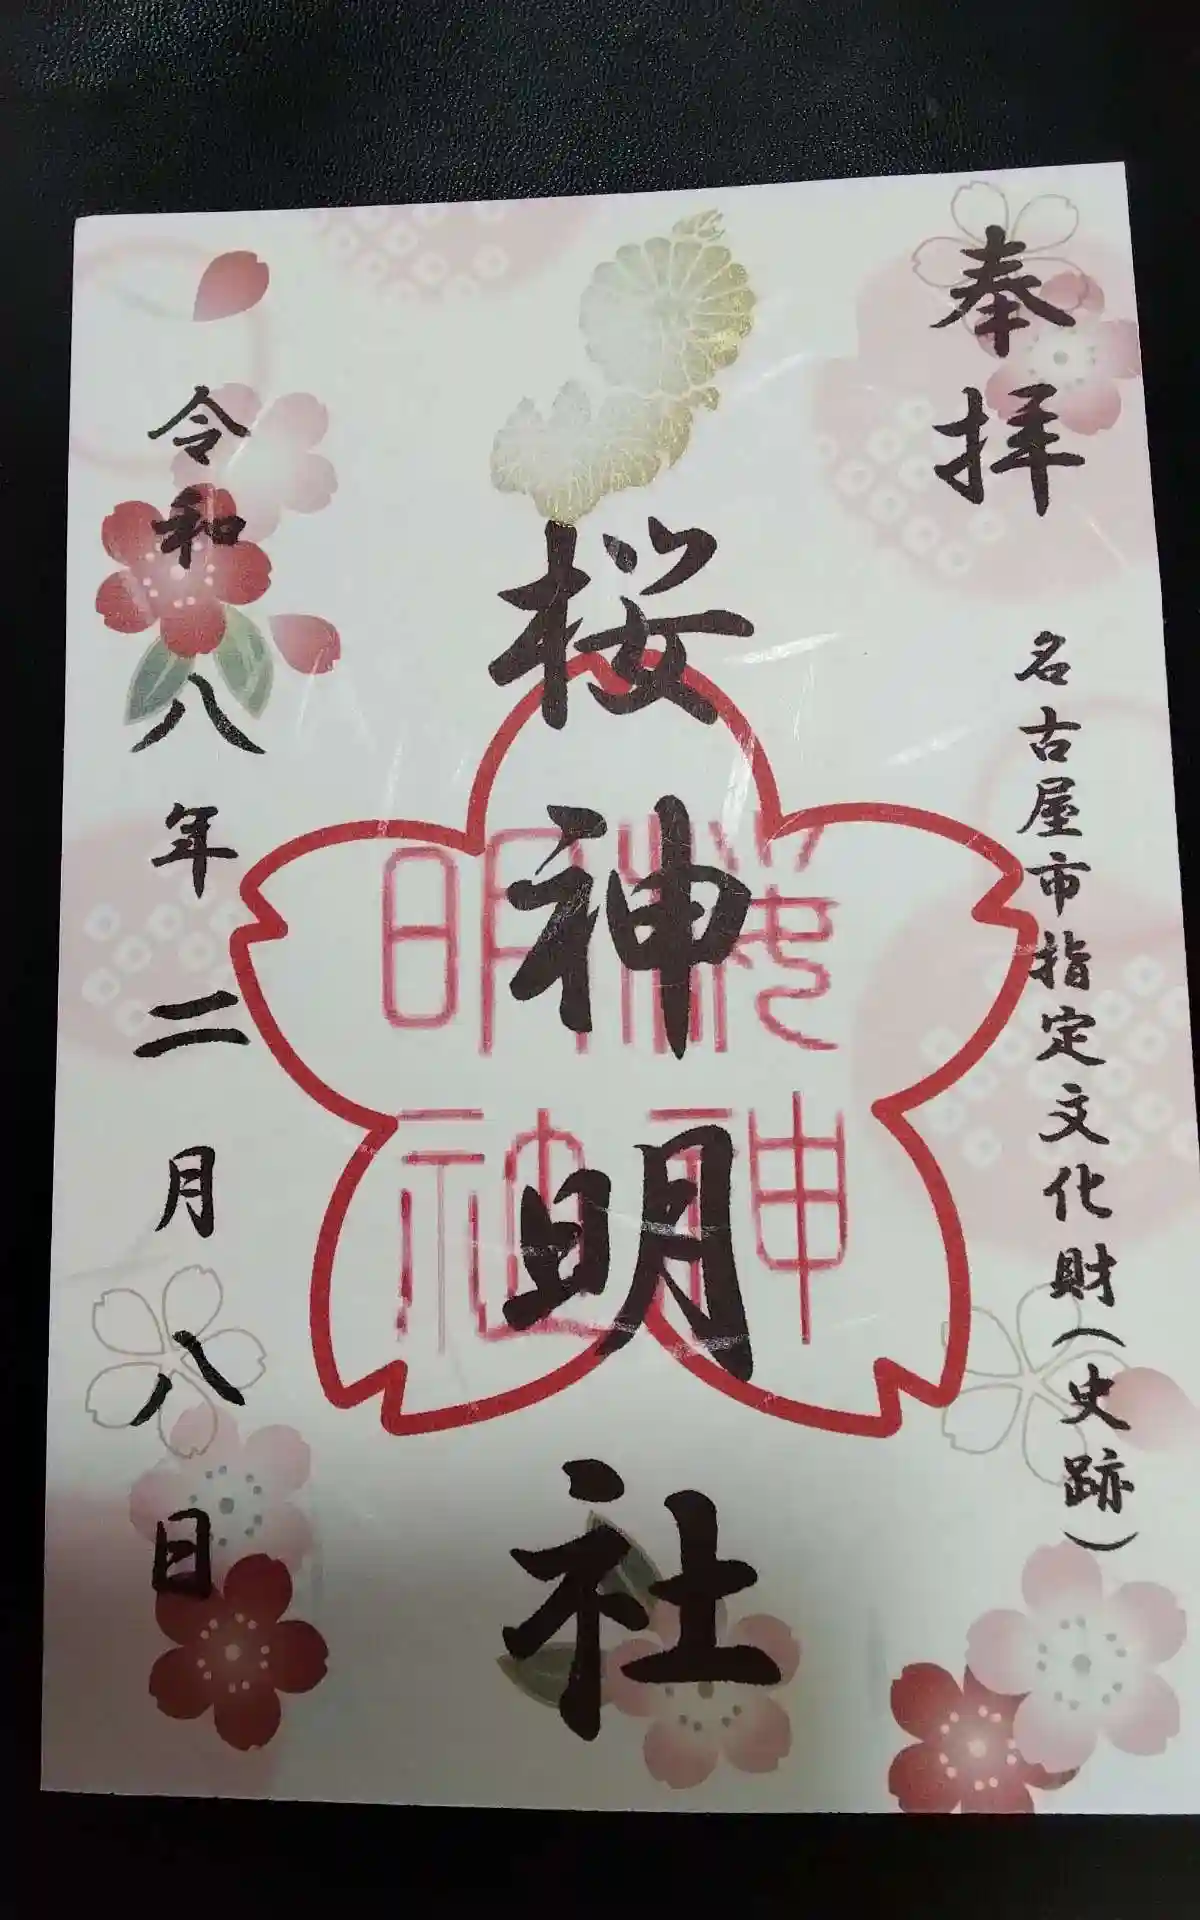 奉拝
名古屋市指定文化財(史跡)
桜神明社
令和八年二月八日